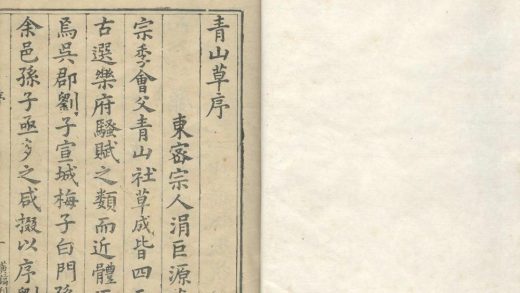 青山草序
東密宗人涓巨源
宗季會父青山社草成皆四五
古選樂府騷賦之類而近體
焉吳郡劉子宣城梅子白門孫
余邑孫子亟多之咸掇以序